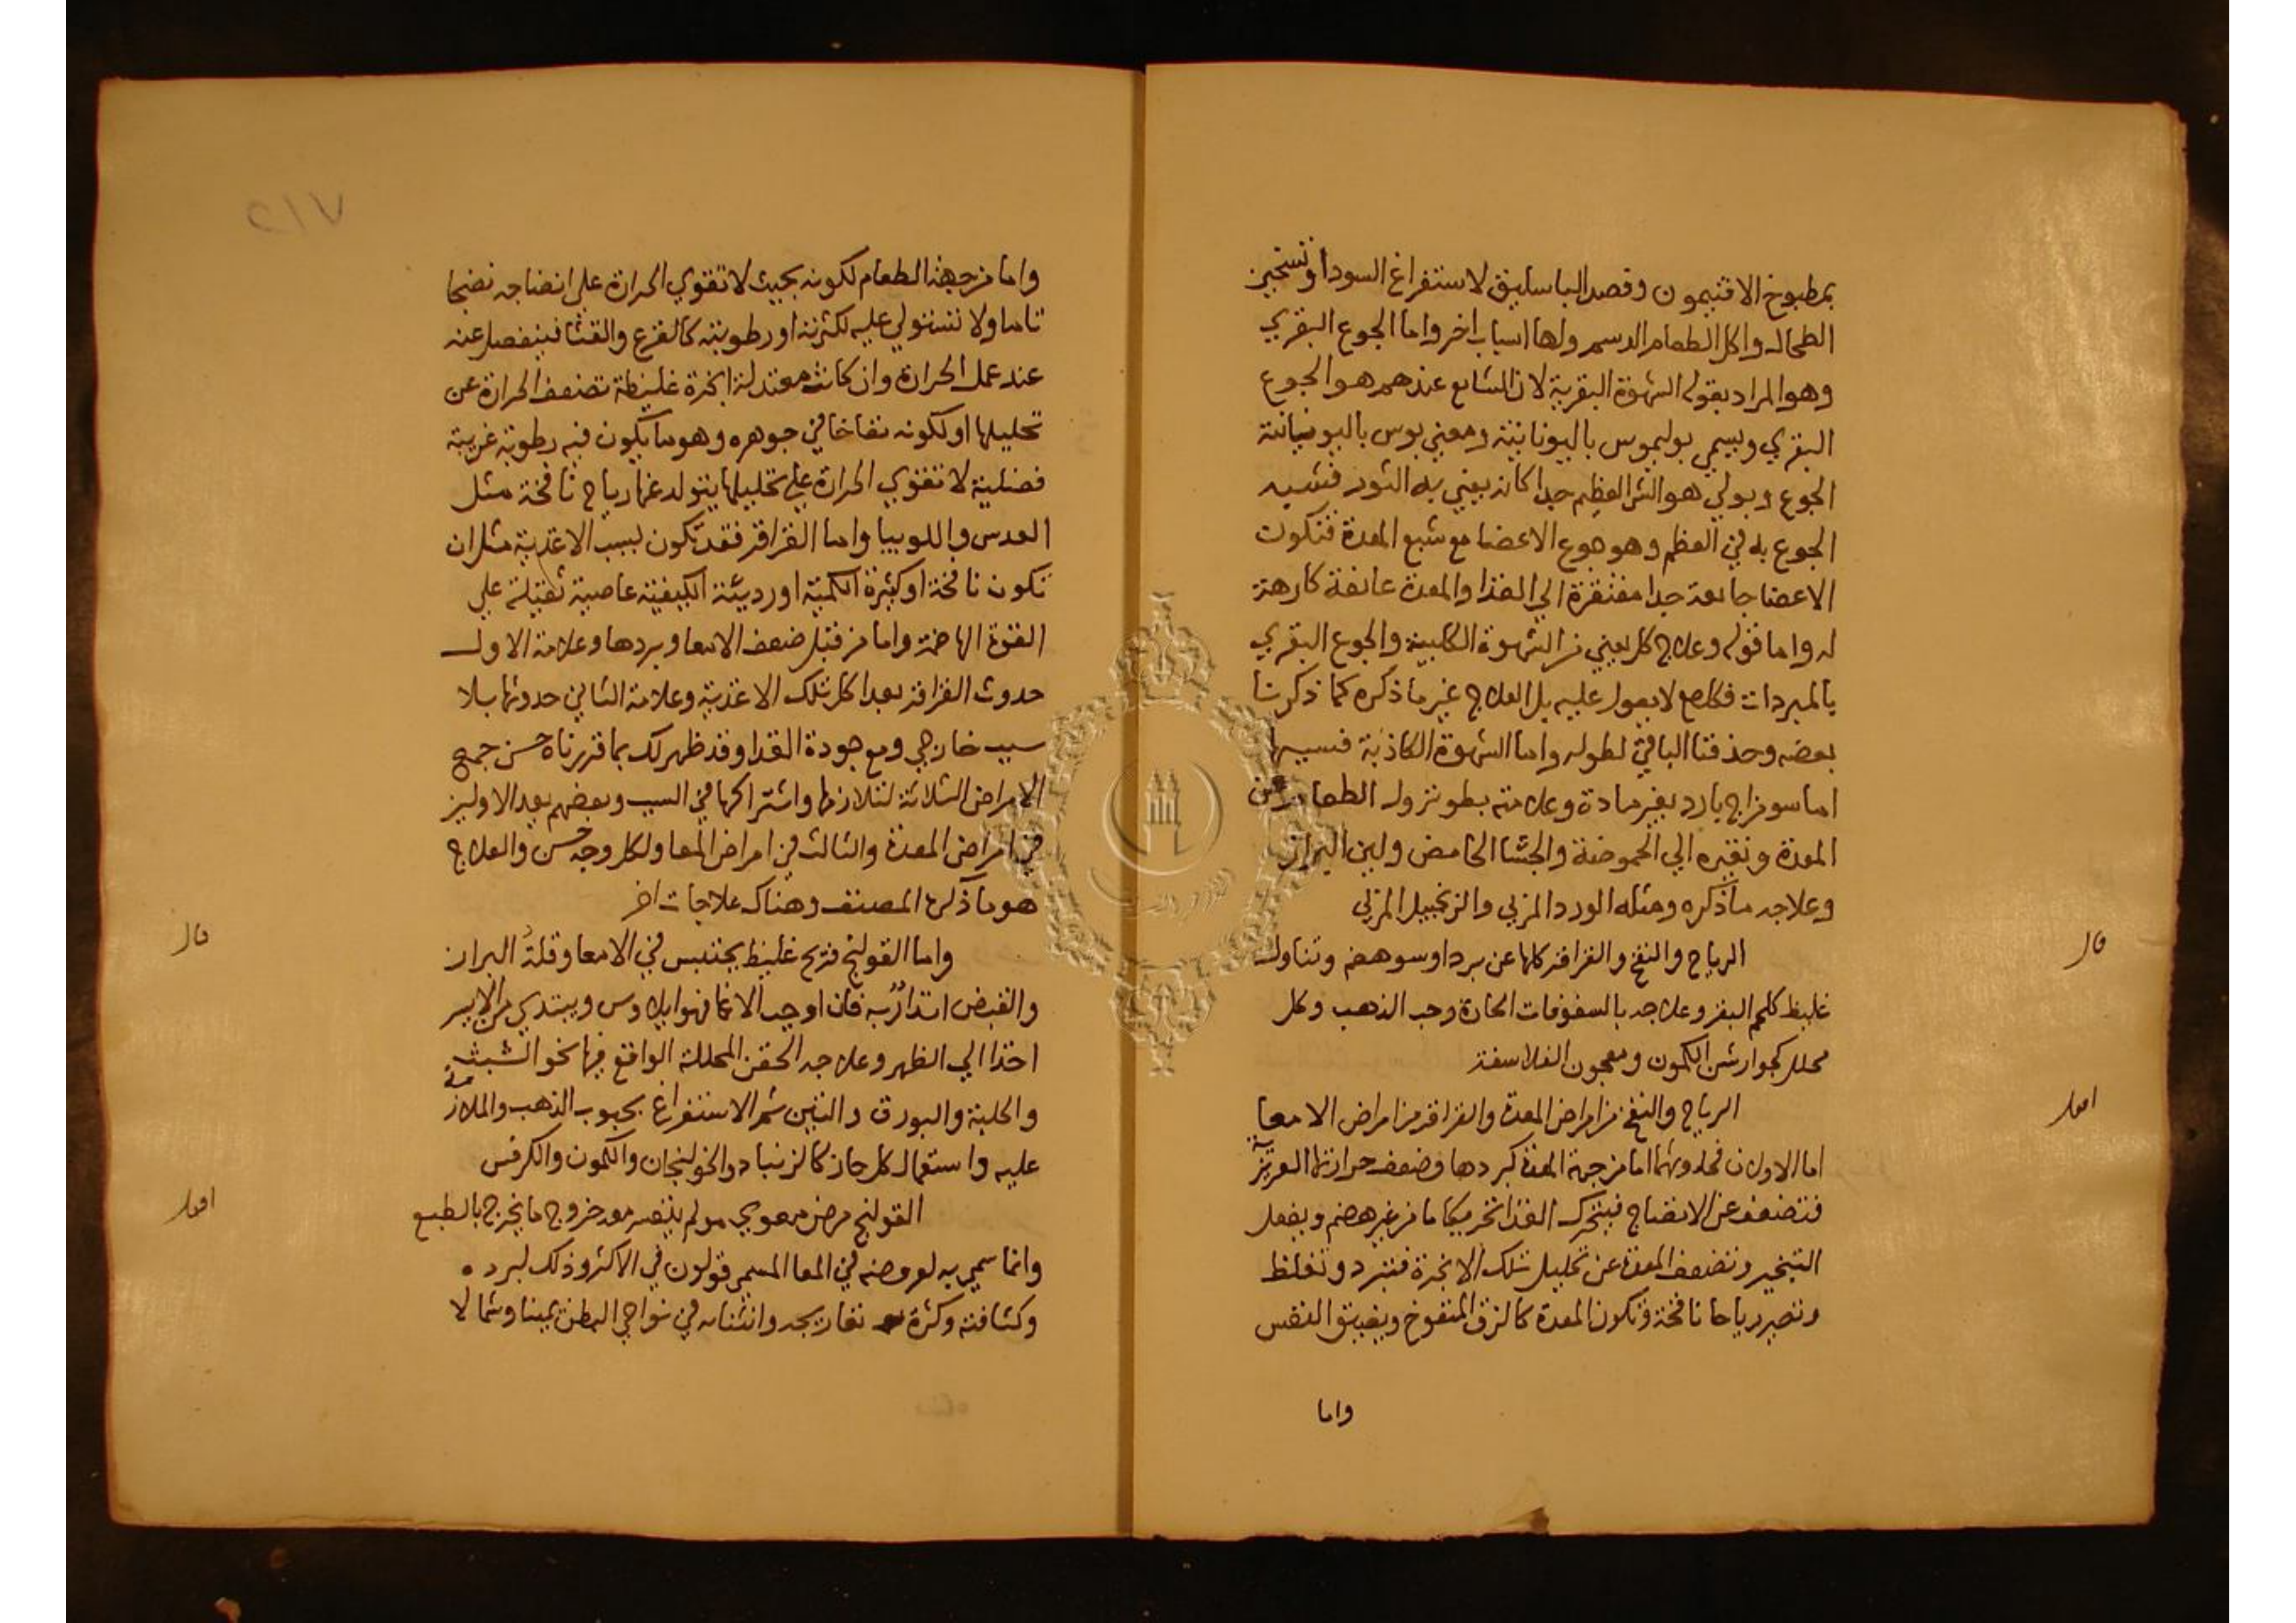 بمطبوخ الافتيمون وفصد الباسليق لاستفراغ السودا وتسخين
الطحال واكل الطعام الدسم ولها اسباب اخر واما الجوع البقري
وهو المراد بقوله الشهوة البقرية لان الشايع عندهم هو الجوع
البقري ويسمي بوليموس باليونانية ومعني بوس باليونيانية
الجوع وبولي هو الشي العظيم جدا كانه يعني به الثور فشبه
الجوع به في العظم وهو جوع الاعضا مع شبع المعدة فتكون
الاعضا جايعة جدا مفتقرة الي الغذا والمعدة عايفة كارهة
له واما قوله وعلاج كل يعني من الشهوة الكلبية والجوع البقري
بالمبردات فكلام لا يعول عليه بل العلاج غير ما ذكره كما ذكرنا
بعضه وحذفنا الباقي لطوله واما الشهوة الكاذبة فسببها
اما سو مزاج بارد بغير مادة وعلامته بطو نزول الطعام عن
المعدة وتغيره الي الحموضة والجشا الحامض ولين البراز
وعلاجه ما ذكره ومثله الورد المربي والزنجبيل المربي
قال
الرياح والنفخ والقراقر كلها عن برد او سو هضم وتناول
غليظ كلحم البقر وعلاجه بالسفوفات الحارة وحب الذهب وكل
محلل كجوارشن الكمون ومعجون الفلاسفة
اقول
الرياح والنفخ من امراض المعدة والقراقر من امراض الامعا
اما الاولان فحدوثهما اما من جهة المعدة كبردها وضعف حرارتها الغريزية
فتضعف عن الانضاج فيتحرك الغذا تحريكا ما من غير هضم ويفعل
التبخير وتضعف المعدة عن تحليل تلك الابخرة فتبرد وتغلظ
وتصير رياحا نافخة وتكون المعدة كالزق المنفوخ ويضيق النفس
واما
٢١٧
واما من جهة الطعام لكونه بحيث لا تقوي الحرارة علي انضاجه نضجا
تاما ولا تستولي عليه لكثرته او رطوبته كالقرع والقثا فينفصل عنه
عند عمل الحرارة وان كانت معتدلة ابخرة غليظة تضعف الحرارة عن
تحليلها او لكونه نفاخا في جوهره وهو ما يكون فيه رطوبة غريبة
فضلية لا تقوي الحرارة علي تحليلها يتولد عنها رياح نافخة مثل
العدس واللوبيا واما القراقر فقد تكون بسبب الاغذية مثل ان
تكون نافخة او كثيرة الكمية او رديئة الكيفية عاصية ثقيلة علي
القوة الهاضمة واما من قبل ضعف الامعا وبردها وعلامة الاول
حدوث القراقر بعد اكل تلك الاغذية وعلامة الثاني حدوثها بلا
سبب خارجي ومع جودة الغدا وقد ظهر لك بما قررناه حسن جمع
الامراض الثلاثة لتلازمها واشتراكها في السبب وبعضهم يعد الاولين
في امراض المعدة والثالث في امراض المعا ولكل وجه حسن والعلاج
هو ما ذكره المصنف وهناك علاجات اخر
قال
واما القولنج فريح غليظ يحتبس في الامعا وقلة البراز
والقبض انذار به فان اوجب الاغما فهو ايلاوس ويبتدي من الايسر
اخذا الي الظهر وعلاجه الحقن المحللة الواقع فيها نحو الشبث
والحلبة والبورق والتين ثم الاستفراغ بحبوب الذهب والملازمة
عليه واستعمال كل حار كالزنباد والخولنجان والكمون والكرفس
اقول
القولنج مرض معوي مولم يتعسر معه خروج ما يخرج بالطبع
وانما سمي به لعروضه في المعا المسمي قولون في الاكثر وذلك لبرده
وكثافته وكثرة تعاريجه وانثنائه في نواحي البطن يمينا وشمالا